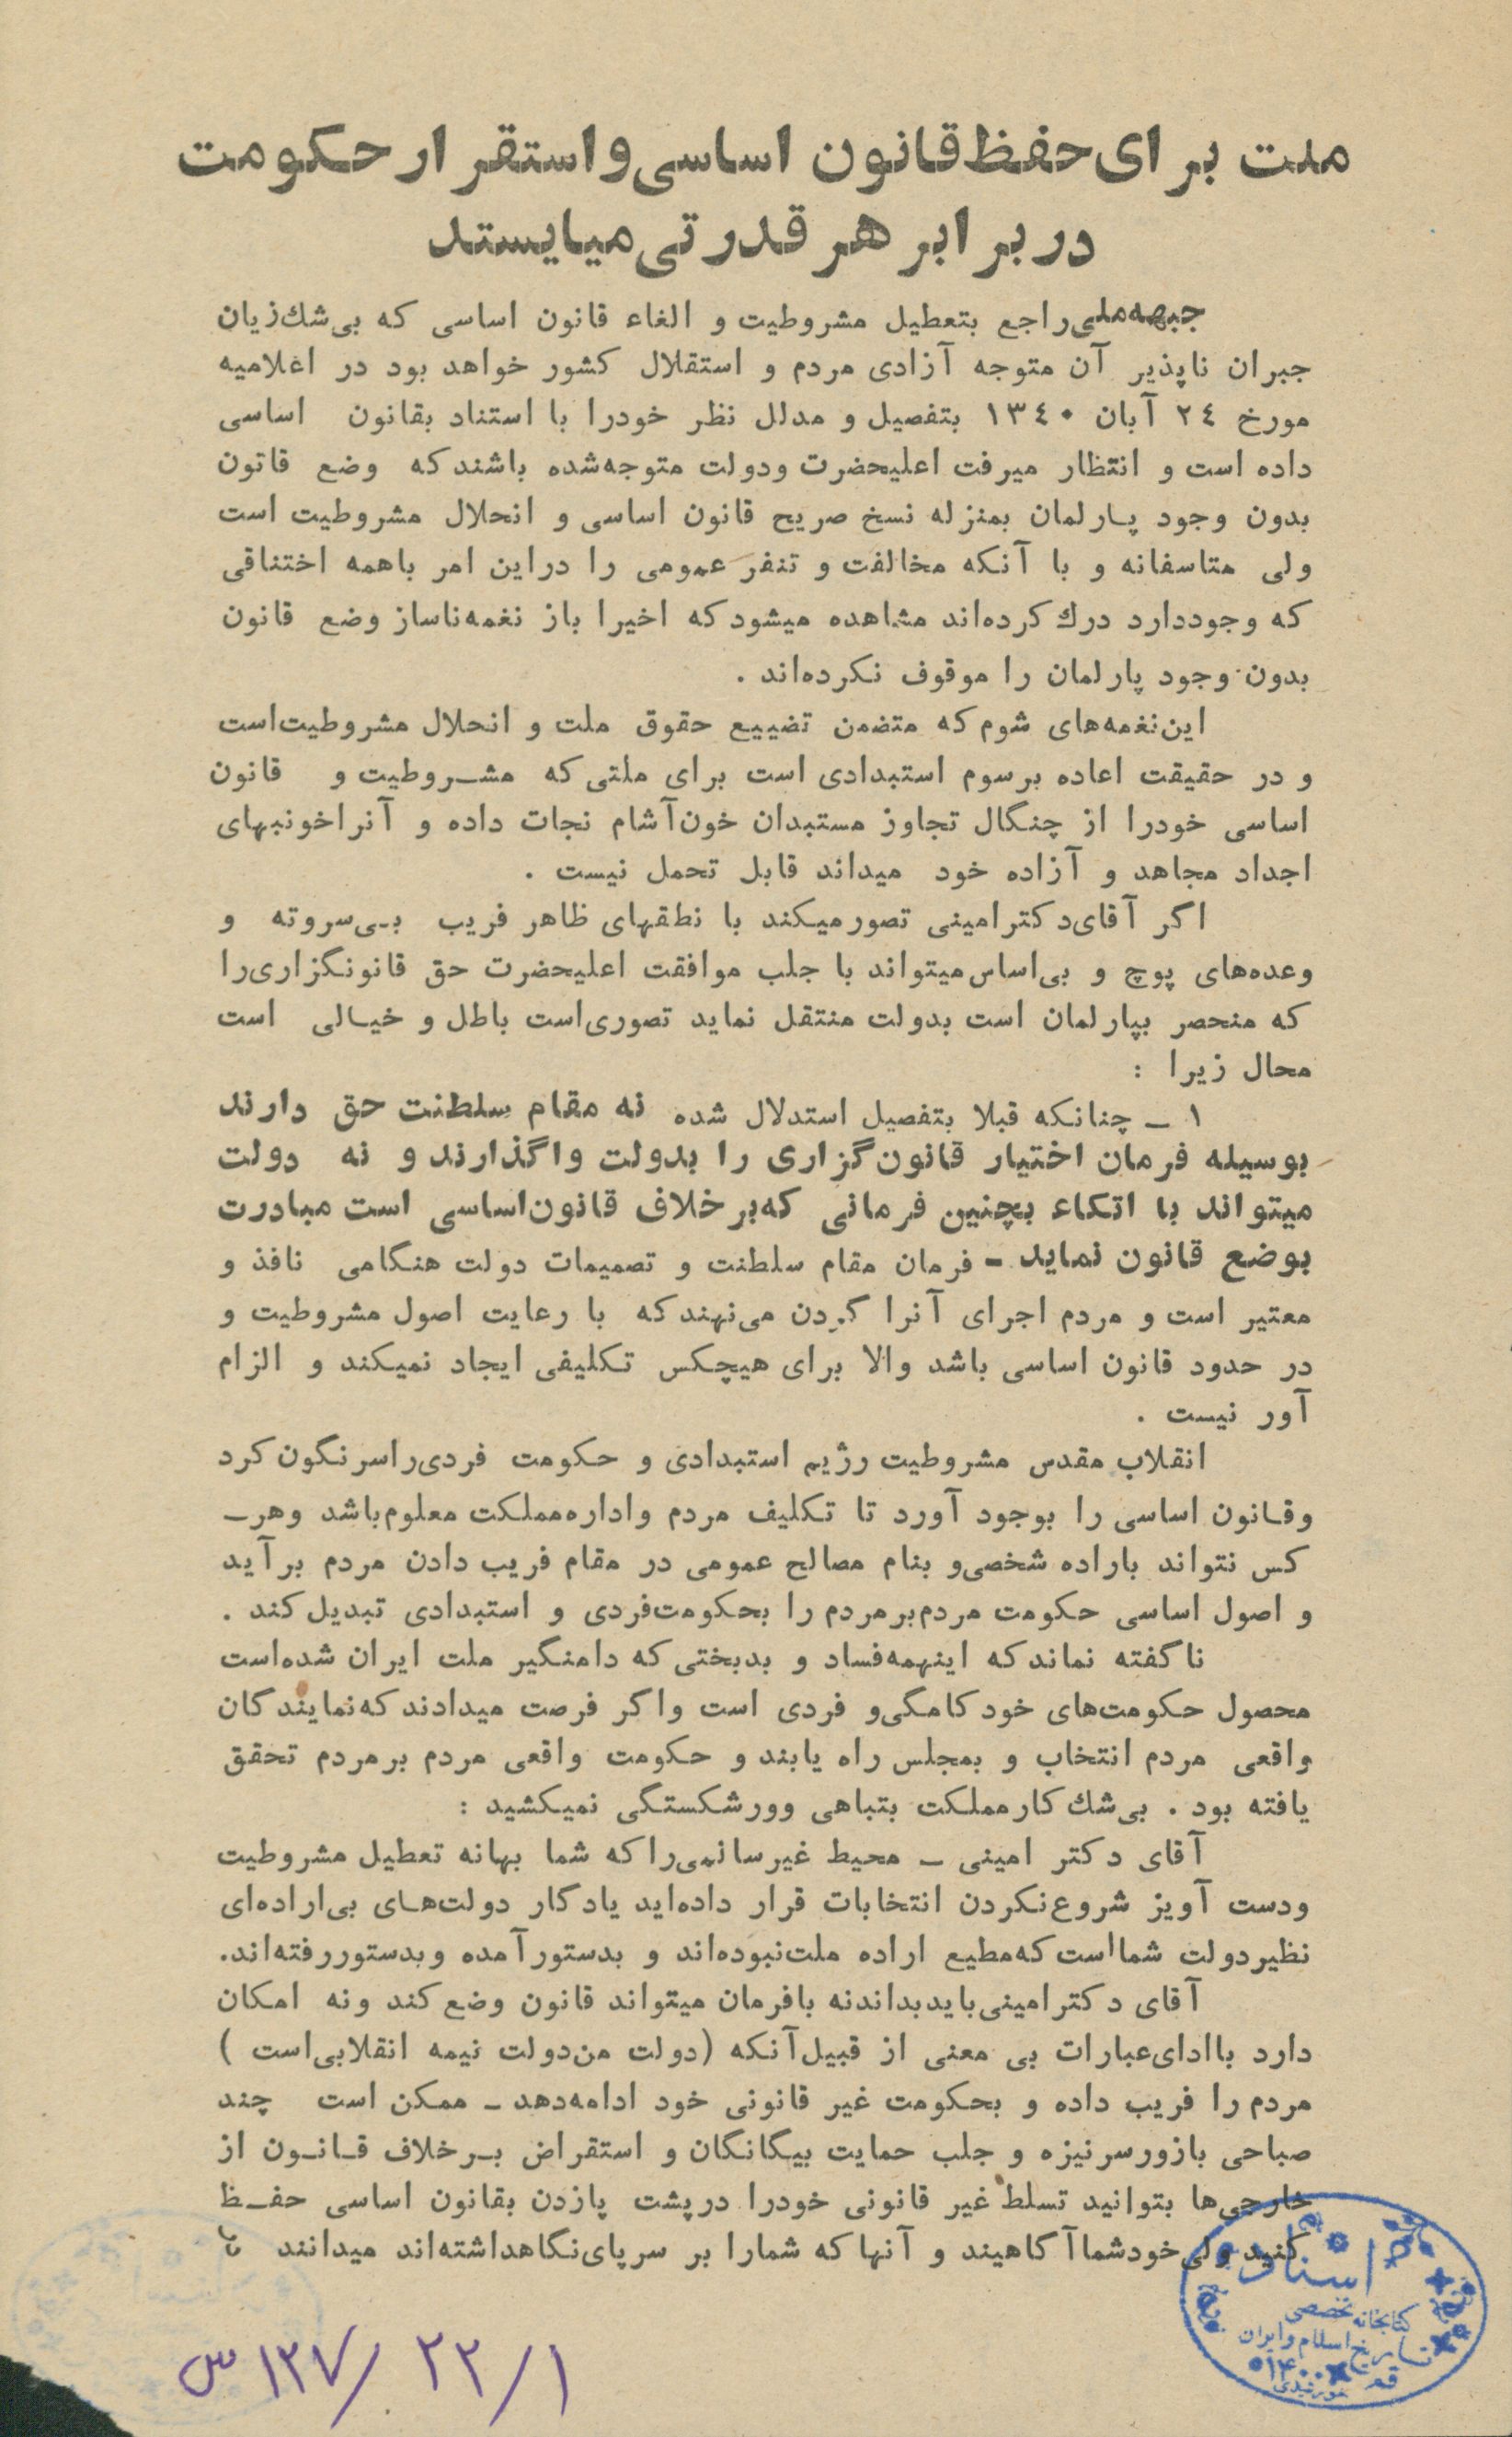 ملت برای حفظ قانون اساسی و استقرار حکومت
در برابر هر قدرتی میایستد
جبهه ملی راجع بتعطیل مشروطیت و الغاء قانون اساسی که بی‌شك زیان
جبران ناپذیر آن متوجه آزادی مردم و استقلال کشور خواهد بود در اعلامیه
مورخ ۲٤ آبان ۱۳٤۰ بتفصیل و مدلل نظر خودرا با استناد بقانون اساسی
داده است و انتظار میرفت اعلیحضرت ودولت متوجه‌شده باشند که وضع قانون
بدون وجود پارلمان بمنزله نسخ صریح قانون اساسی و انحلال مشروطیت است
ولی متاسفانه و با آنکه مخالفت و تنفر عمومی را دراین امر باهمه اختناقی
که وجوددارد درك کرده‌اند مشاهده میشود که اخیرا باز نغمه‌ناساز وضع قانون
بدون وجود پارلمان را موقوف نکرده‌اند .
این‌نغمه‌های شوم که متضمن تضییع حقوق ملت و انحلال مشروطیت‌است
و در حقیقت اعاده برسوم استبدادی است برای ملتی که مشـروطیت و قانون
اساسی خودرا از چنگال تجاوز مستبدان خون‌آشام نجات داده و آنراخونبهای
اجداد مجاهد و آزاده خود میداند قابل تحمل نیست .
اگر آقای‌دکترامینی تصورمیکند با نطقهای ظاهر فریب بـی‌سروته و
وعده‌های پوچ و بی‌اساس میتواند با جلب موافقت اعلیحضرت حق قانونگزاری‌را
که منحصر بپارلمان است بدولت منتقل نماید تصوری‌است باطل و خیـالی است
محال زیرا :
۱ ـ چنانکه قبلا بتفصیل استدلال شده نه مقام سلطنت حق دارند
بوسیله فرمان اختیار قانون‌گزاری را بدولت واگذارند و نه دولت
میتواند با اتکاء بچنین فرمانی که‌برخلاف قانون‌اساسی است مبادرت
بوضع قانون نماید - فرمان مقام سلطنت و تصمیمات دولت هنگامی نافذ و
معتبر است و مردم اجرای آنرا گردن می‌نهند که با رعایت اصول مشروطیت و
در حدود قانون اساسی باشد والا برای هیچکس تکلیفی ایجاد نمیکند و الزام
آور نیست .
انقلاب مقدس مشروطیت رژیم استبدادی و حکومت فردی‌راسرنگون کرد
وقـانون اساسی را بوجود آورد تا تکلیف مردم واداره‌مملکت معلوم‌باشد وهرـ
کس نتواند باراده شخصی‌و بنام مصالح عمومی در مقام فریب دادن مردم برآید
و اصول اساسی حکومت مردم‌برمردم را بحکومت‌فردی و استبدادی تبدیل کند .
ناگفته نماند که اینهمه‌فساد و بدبختی که دامنگیر ملت ایران شده‌است
محصول حکومت‌های خودکامگی‌و فردی است واگر فرصت میدادند که‌نمایندگان
واقعی مردم انتخاب و بمجلس راه یابند و حکومت واقعی مردم برمردم تحقق
یافته بود . بی‌شك کارمملکت بتباهی وورشکستگی نمیکشید :
آقای دکتر امینی ـ محیط غیرسالمی‌را که شما بهانه تعطیل مشروطیت
ودست آویز شروع‌نکردن انتخابات قرار داده‌اید یادگار دولت‌هـای بی‌اراده‌ای
نظیردولت شمااست که‌مطیع اراده ملت‌نبوده‌اند و بدستورآمده وبدستوررفته‌اند.
آقای دکترامینی‌بایدبداندنه بافرمان میتواند قانون وضع کند ونه امکان
دارد باادای‌عبارات بی معنی از قبیل‌آنکه (دولت من‌دولت نیمه انقلابی‌است )
مردم را فریب داده و بحکومت غیر قانونی خود ادامه‌دهد - ممکن است چند
صباحی بازورسرنیزه و جلب حمایت بیگانگان و استقراض بـرخلاف قـانـون از
خارجی‌ها بتوانید تسلط غیر قانونی خودرا درپشت پازدن بقانون اساسی حفـظ
کنید ولی‌خودشماآگاهیند و آنها که شمارا بر سرپای‌نگاهداشته‌اند میدانند تا
اسناد
کتابخانه تخصصی
تاریخ اسلام و ایران
قم ۱۴۰۰
خورشیدی
۱/ ۲۲ /۱۲۷ س